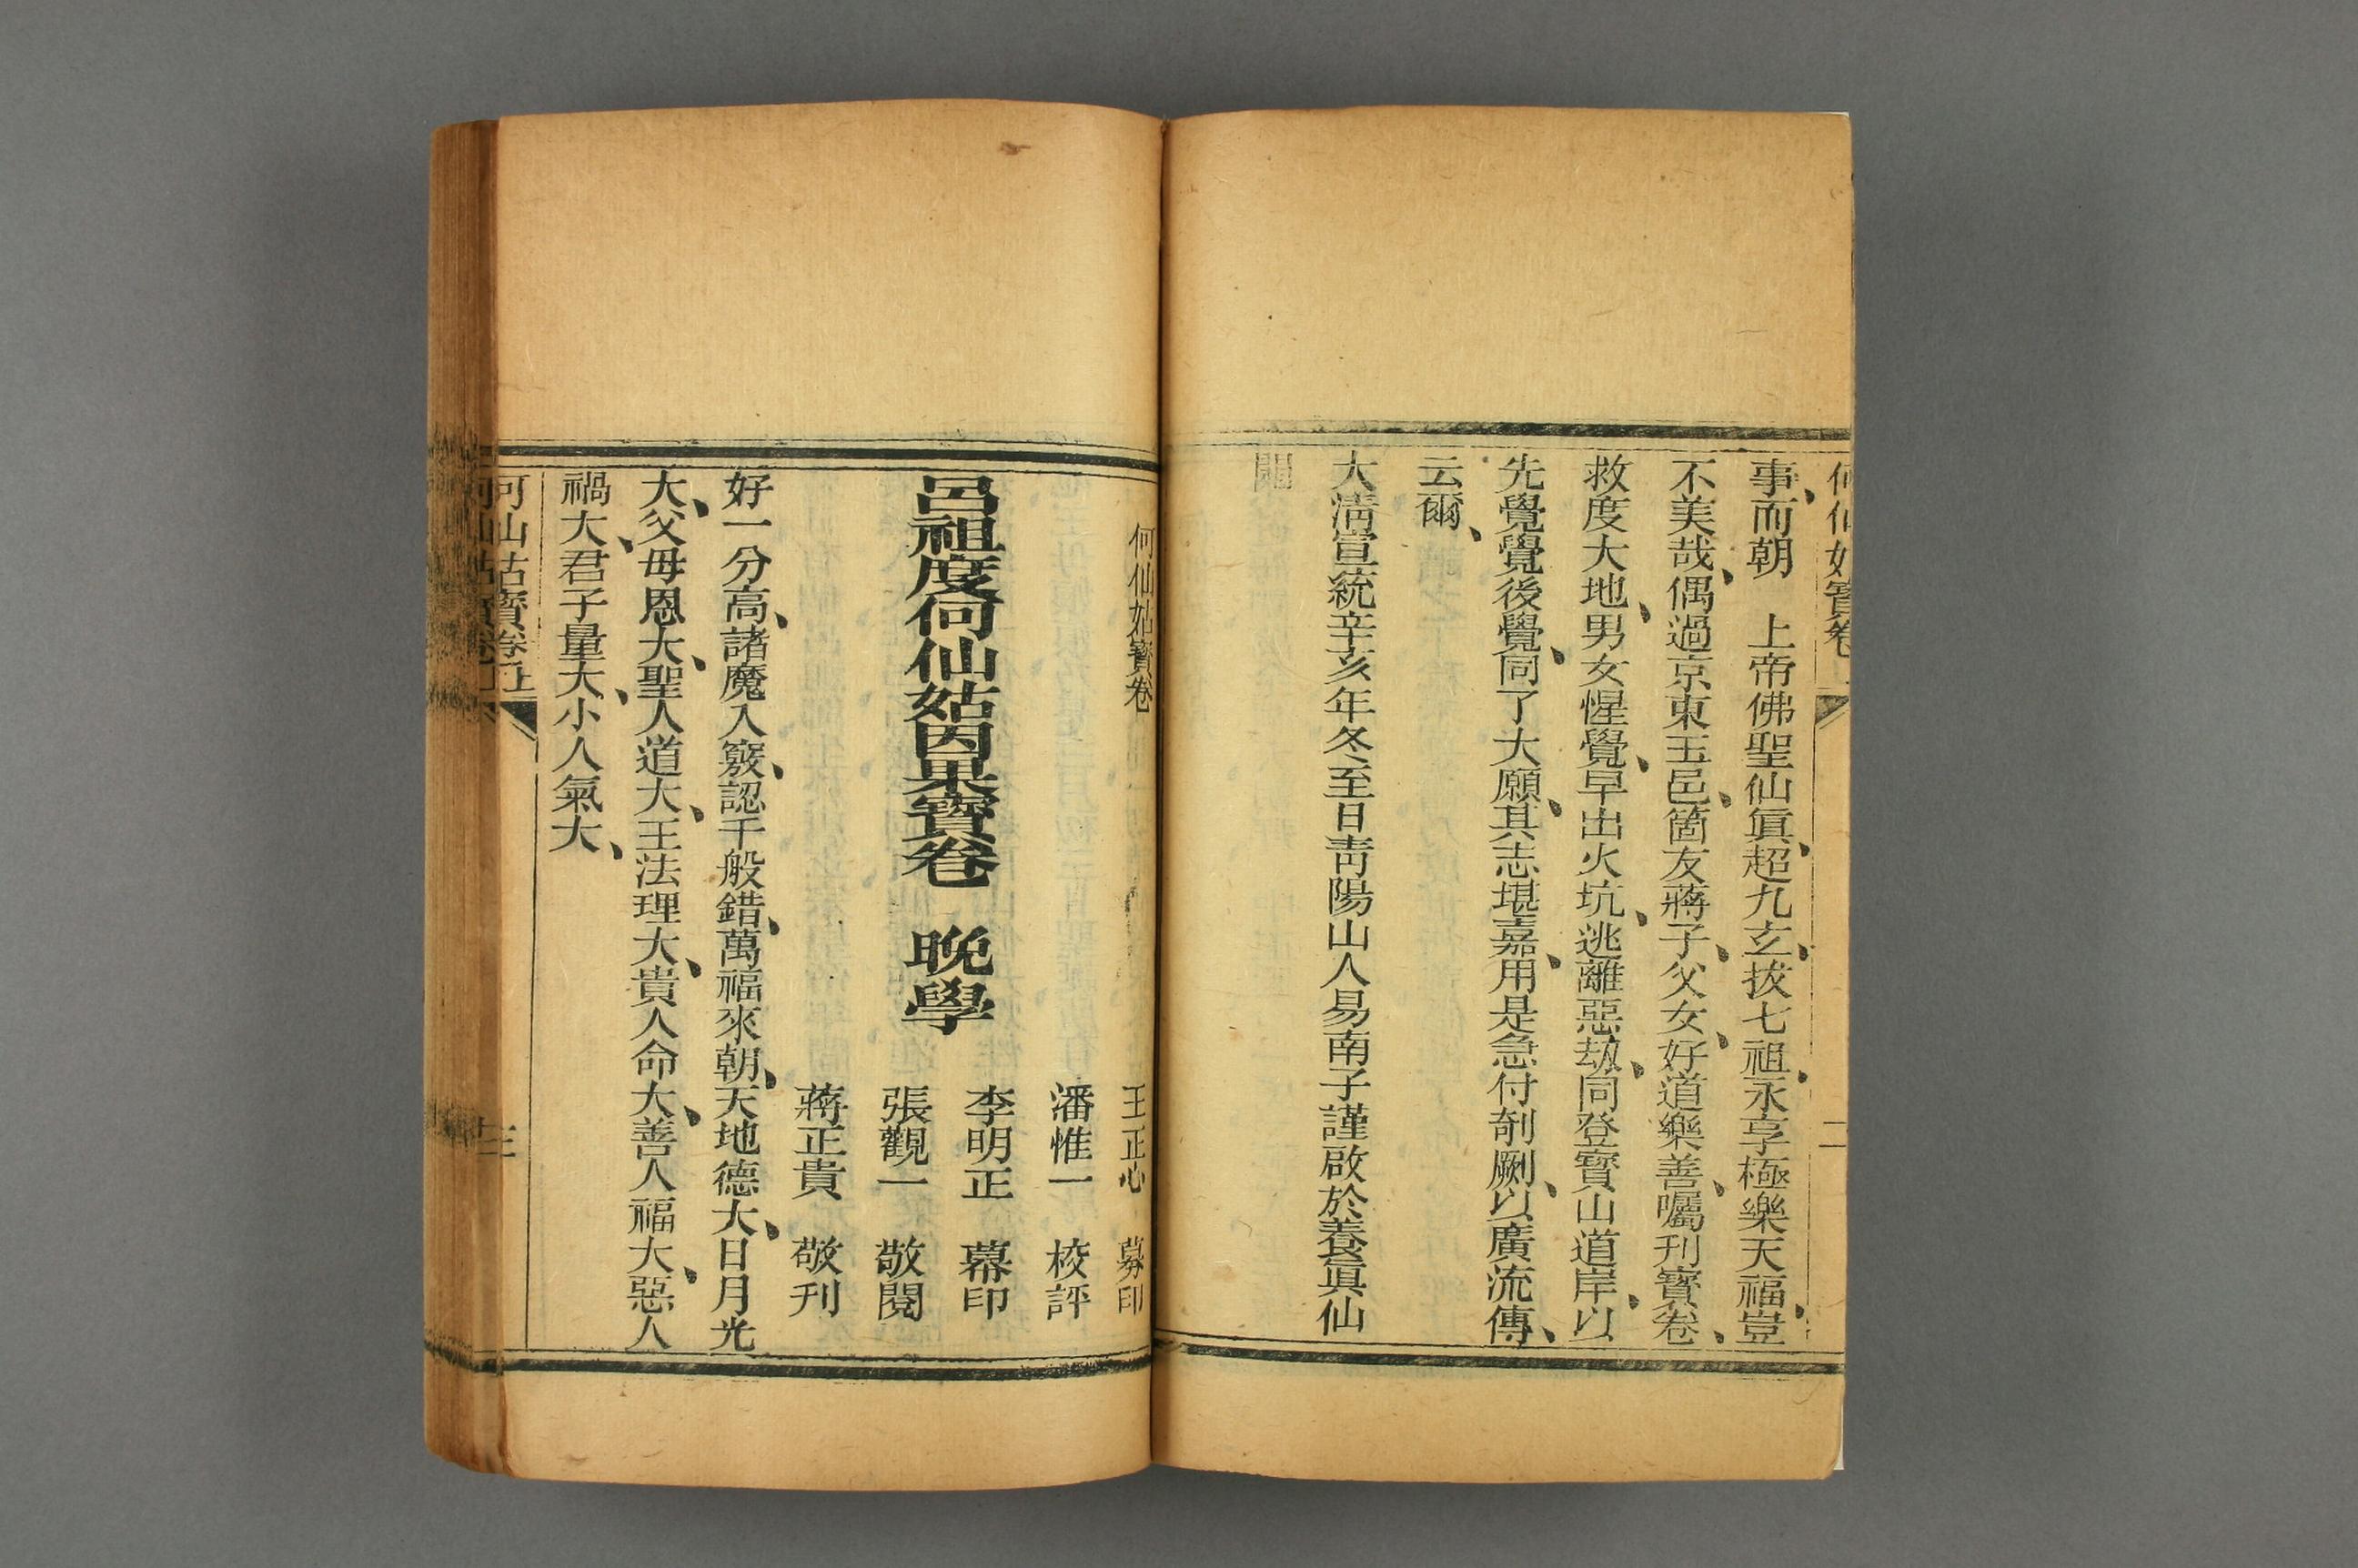 何仙姑寶卷
二
事、而朝　上帝佛聖仙眞、超九玄、拔七祖、永享極樂天福、豈
不美哉、偶過京東玉邑、箇友蔣子、父女、好道樂善、囑刊寶卷、
救度大地、男女惺覺、早出火坑、逃離惡劫、同登寶山道岸、以
先覺覺後覺、同了大願、其志堪嘉、用是急付剞劂、以廣流傳、
云爾、
大淸宣統辛亥年冬至日靑陽山人易南子謹啟於養眞仙
閣
何仙姑寶卷
王正心　募印
潘惟一　校評
呂祖度何仙姑因果寶卷　晚學　李明正　募印
張觀一　敬閱
蔣正貴　敬刊
好一分高、諸魔入竅、認千般錯、萬福來朝、天地德大、日月光
大、父母恩大、聖人道大、王法理大、貴人命大、善人福大、惡人
禍大、君子量大、小人氣大、
何仙姑寶卷上
三